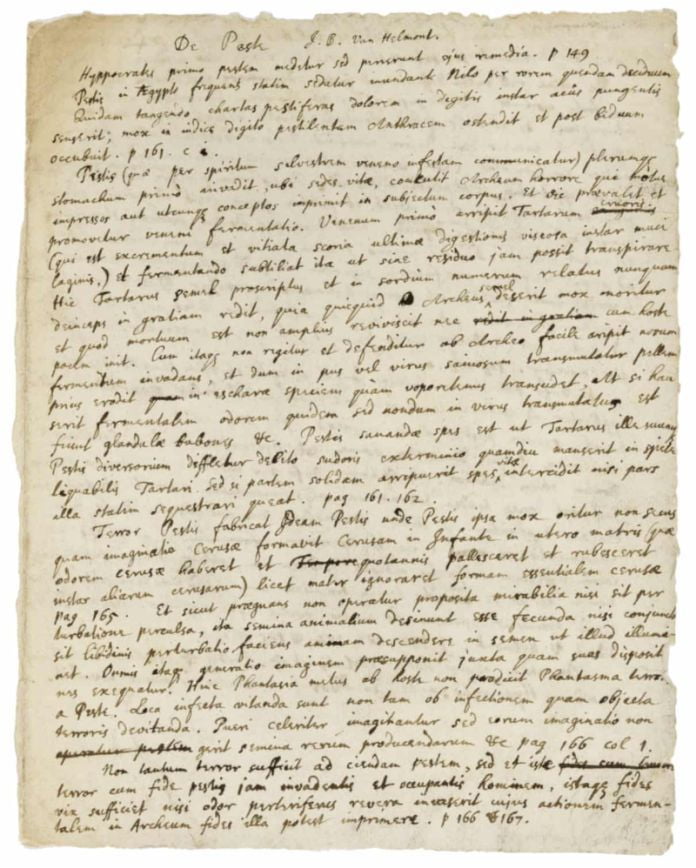 De Peste J. B. Van Helmont.
Hyppocrates primo pestem medetur sed perierunt ejus remedia. p 149
Pestis in Ægypto frequens statim sedatur inundante Nilo per rorem quendam deciduum
Quidam tangendo chartas pestiferas dolorem in digitis instar acûs pungentis
senserit; mox in indice digito pestilentem Anthracem ostendit et post biduum
occubuit. p 161. c
Pestis (quæ per spiritum salvestrem veneno infectam communicatur) plerunque
stomachum primò invadit, ubi sedes vitæ, concutit Archeum horrore qui
impressos aut utcunque conceptos imprimit in subjectum corpus. Et sic prævalet et
promovetur veneni fermentatio. Venenum primo arripit Tartarum cruoris
(qui est excrementum et vitiata scoria ultimæ digestionis viscosa instar muci
laginis,) et fermentando subtiliat ita ut sine residuo jam possit transpirare
Hic Tartarus semel proscriptus et in sordium numerum relatus nunquam
deinceps in gratiam redit, quia quicquid Archeus semel deserit mox moritur
et quod mortuum est non amplius reviviscit nec redit in gratiam cum hoste
pacem init. Cum itaque non regitur et defenditur ab Archeo facile aripit novum
fermentum invadens, et dum in pus vel virus saniosum transmutatur pellem
prius erodit in escharæ speciem quàm voporetenus transudet. At si hau
serit fermentalem odorem quidem sed nondum in virus transmutatus est
fiunt glandulæ bubones &c. Pestis sanandæ spes est ut Tartarus ille
Pestis diversorium diffletur debito sudoris exterminio quamdiu manserit in specie
liquabilis Tartari. Sed si partem solidam arripuerit spes vitæ intercidit nisi pars
illa statim sequestrari queat. pag 161. 162.
Terror Pestis fabricat Ideam Pestis unde Pestis ipsa mox oritur non secus
quam imaginatio Cerusæ formavit Cerusam in Infante in utero matris (quæ
odorem cerusæ haberet et Tempore quotannis pallesceret et rubesceret
instar aliarum cerusarum) licet mater ignoraret formam essentialem cerusæ
pag 165. Et sicut prægnans non operatur proposita mirabilia nisi sit per
turbatione perculsa, ita semina animalium desinunt esse fecunda nisi conjuncta
sit libidinis perturbatio faciens animam descendere in semen ut illud illumi-
net. Omnis itaque generatio imaginem præsupponit juxta quam suas disposit
nes exequatur. Hinc Phantasia metus ab hoste non producit Phantasma terro..
a Peste. Loca infecta vitanda sunt non tam ob infectionem quam objecta
terroris devitanda. Pueri celeriter imaginantur sed eorum imaginatio non
operatur pestem gerit semina rerum producendarum &c pag 166 col 1.
Non tantum terror sufficit ad ciendam pestem, sed et iste fides cum
terror cum fide pestis jam invadentis et occupantis hominem, istaque fides
vix sufficiet nisi odor pestiferus revera inveserit cujus actionem fermen-
talem in Archeum fides illa potest imprimere. p 166 & 167.